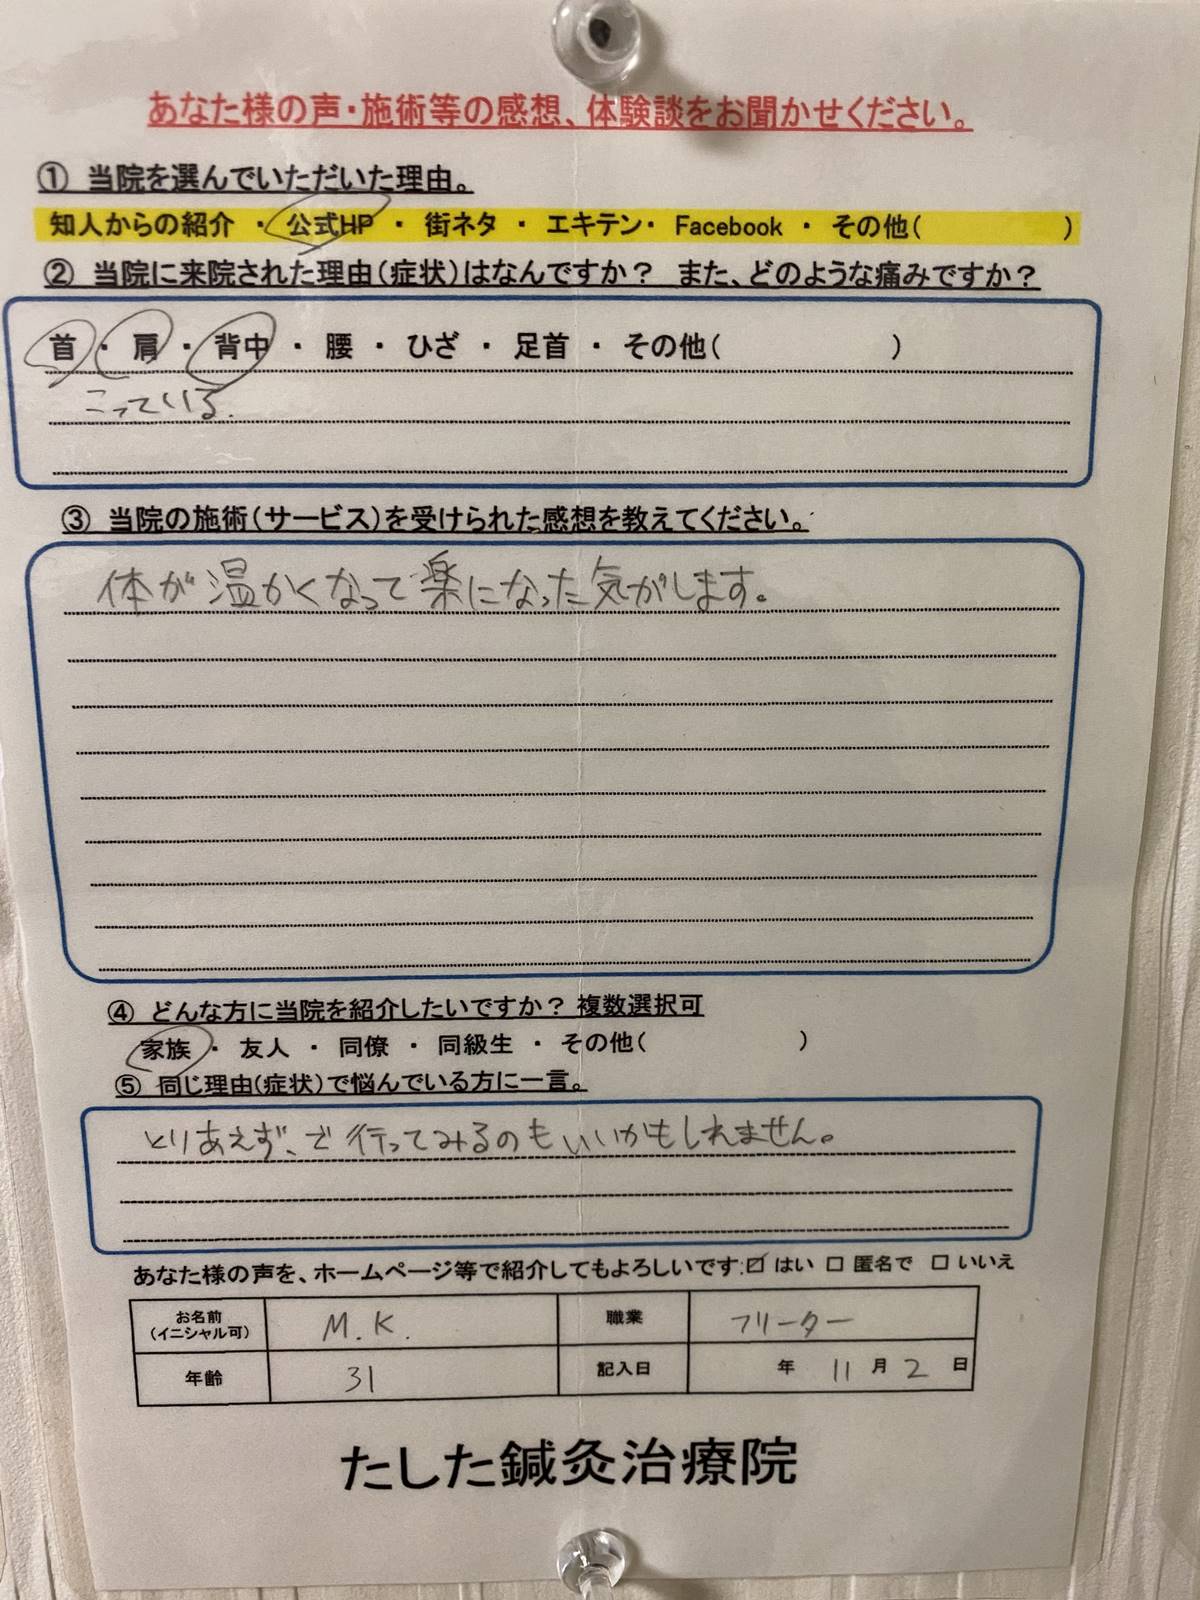 あなた様の声・施術等の感想、体験談をお聞かせください。
① 当院を選んでいただいた理由。
知人からの紹介 ・ 公式HP ・ 街ネタ ・ エキテン・ Facebook ・ その他( )
② 当院に来院された理由(症状)はなんですか? また、どのような痛みですか?
首 ・ 肩 ・ 背中 ・ 腰 ・ ひざ ・ 足首 ・ その他( )
こっている.
③ 当院の施術(サービス)を受けられた感想を教えてください。
体が温かくなって楽になった気がします。
④ どんな方に当院を紹介したいですか? 複数選択可
家族 ・ 友人 ・ 同僚 ・ 同級生 ・ その他( )
⑤ 同じ理由(症状)で悩んでいる方に一言。
とりあえず、で行ってみるのもいいかもしれません。
あなた様の声を、ホームページ等で紹介してもよろしいです:☑ はい □ 匿名で □ いいえ
お名前(イニシャル可) M.K. 職業 フリーター
年齢 31 記入日 年 11 月 2 日
たした鍼灸治療院